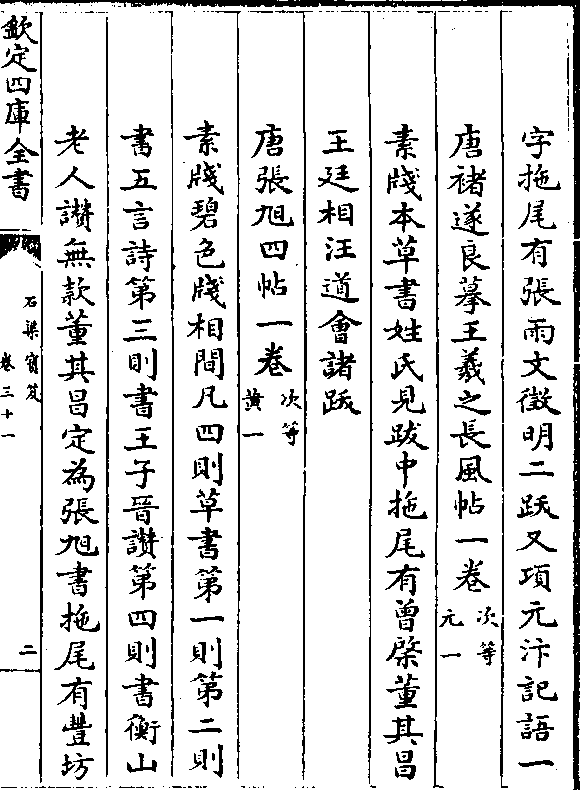 字拖尾有張雨文徵明二跋又項元汴記語一
唐褚遂良摹王羲之長風帖一卷 次等元一
素牋本草書姓氏見跋中拖尾有曾棨董其昌
王廷相汪道會諸跋
唐張旭四帖一卷 次等黄一
素牋碧色牋相間凡四則草書第一則第二則
書五言詩第三則書王子晉讚第四則書衡山
老人讚無款董其昌定為張旭書拖尾有豐坊
欽定四庫全書
石渠寳笈
卷三十一
二